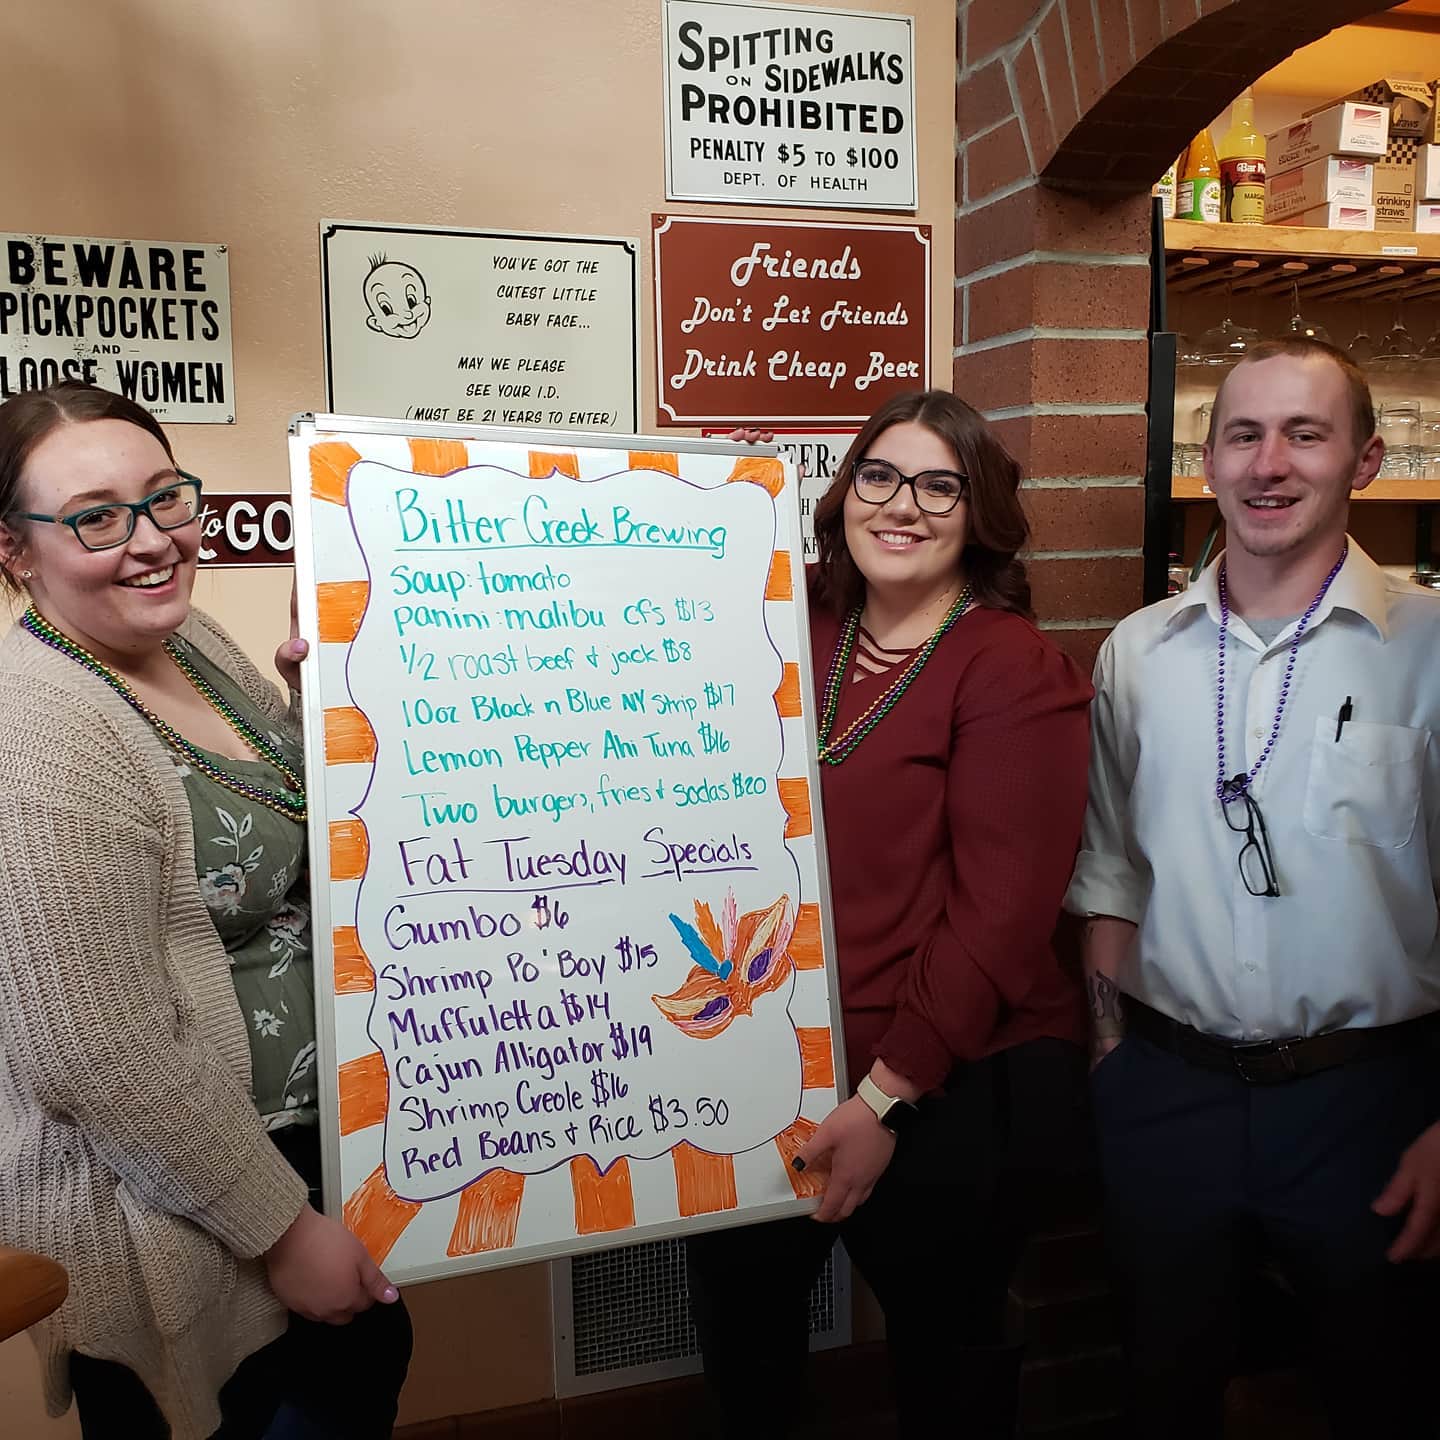 SPITTING
ON SIDEWALKS
PROHIBITED
PENALTY $5 TO $100
DEPT. OF HEALTH
BEWARE
PICKPOCKETS
AND
LOOSE WOMEN
DEPT.
YOU'VE GOT THE
CUTEST LITTLE
BABY FACE...
MAY WE PLEASE
SEE YOUR I.D.
(MUST BE 21 YEARS TO ENTER)
Friends
Don't Let Friends
Drink Cheap Beer
to GO
Bitter Creek Brewing
Soup: tomato
panini: malibu cfs $13
1/2 roast beef & jack $8
10oz Black n Blue NY Strip $17
Lemon Pepper Ahi Tuna $16
Two burgers, fries & sodas $20
Fat Tuesday Specials
Gumbo $6
Shrimp Po'Boy $15
Muffuletta $14
Cajun Alligator $19
Shrimp Creole $16
Red Beans & Rice $3.50
drinking
straws